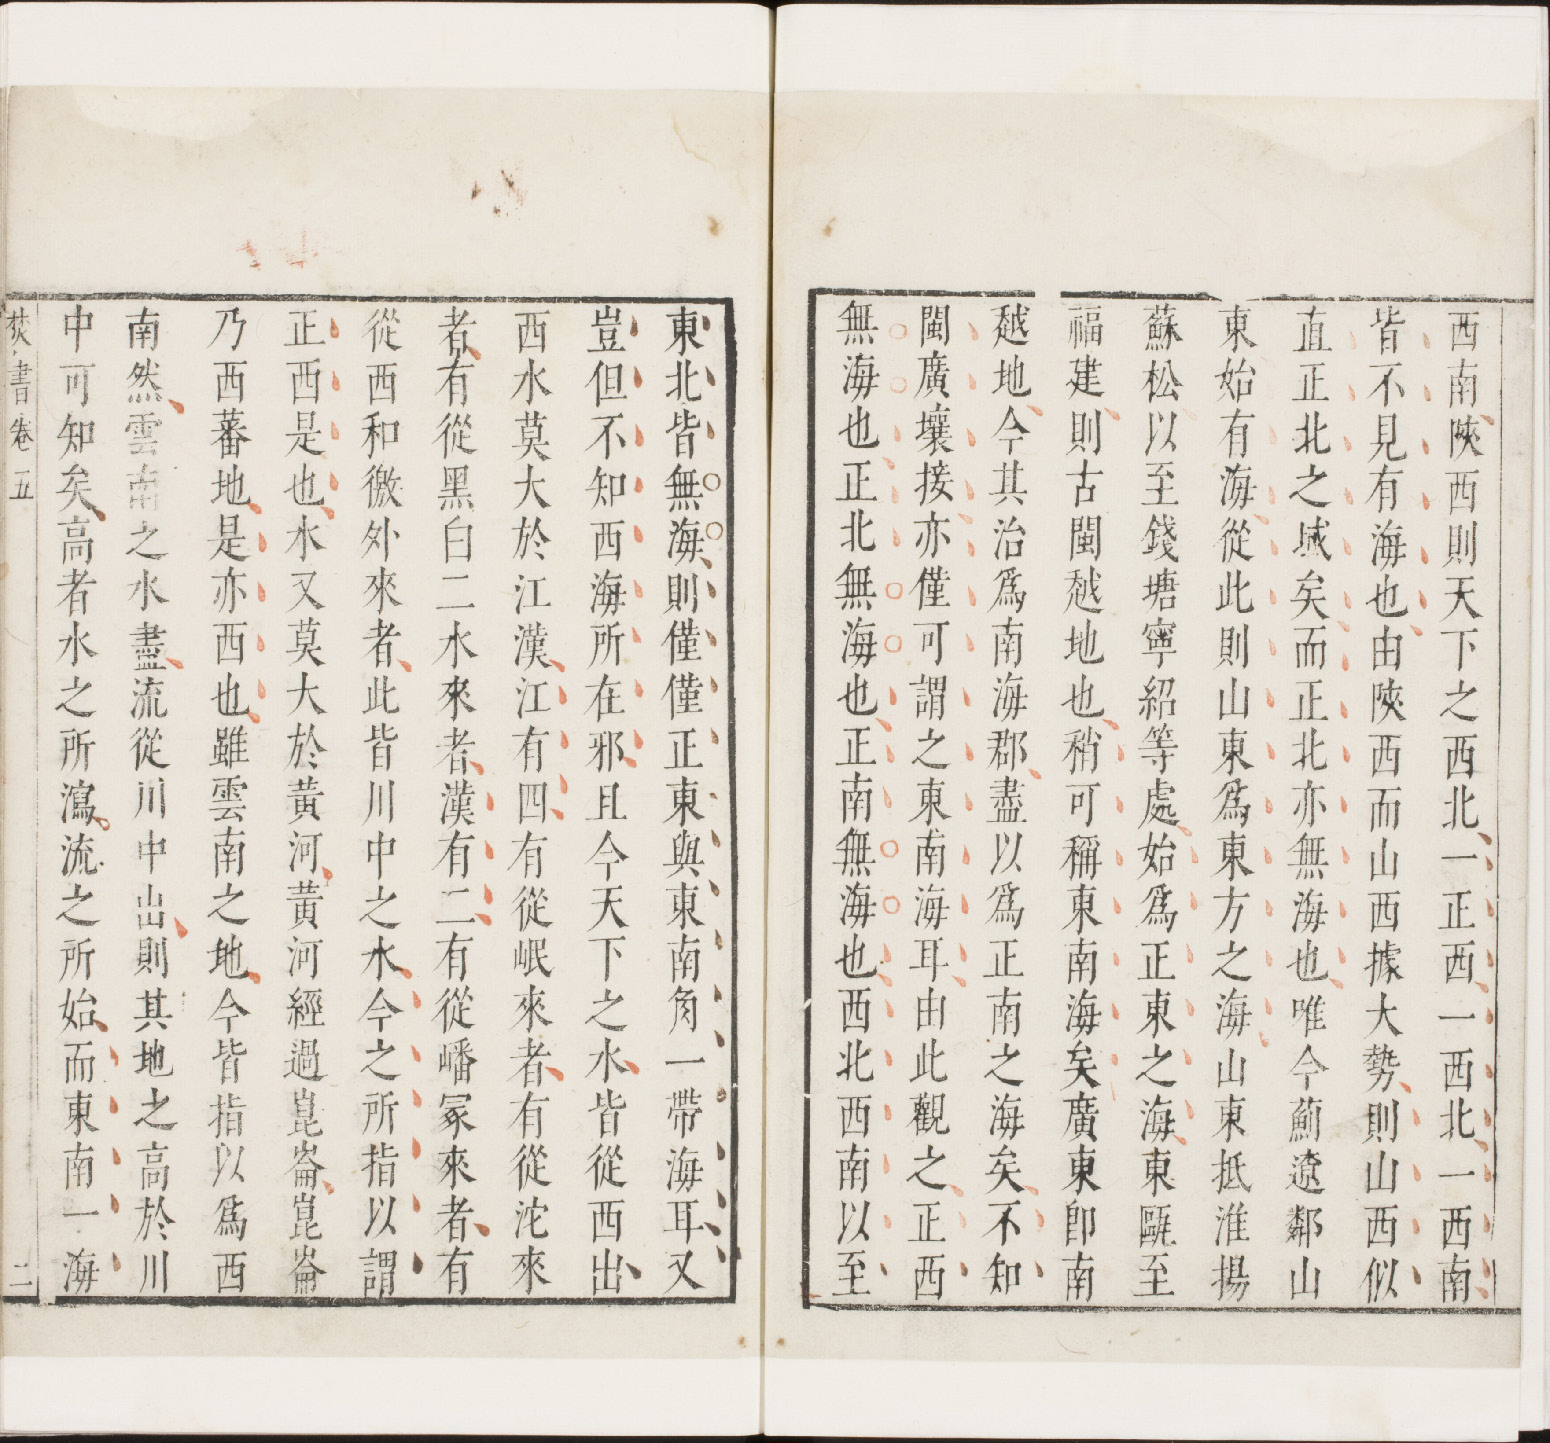 西南陜西則天下之西北一正西一西北一西南
皆不見有海也由陜西而山西據大勢則山西似
直正北之域矣而正北亦無海也唯今薊遼鄰山
東始有海從此則山東爲東方之海山東抵淮揚
蘇松以至錢塘寧紹等處始爲正東之海東甌至
福建則古閩越地也稍可稱東南海矣廣東卽南
越地今其治爲南海郡盡以爲正南之海矣不知
閩廣壤接亦僅可謂之東南海耳由此觀之正西
無海也正北無海也正南無海也西北西南以至
東北皆無海則僅僅正東與東南角一帶海耳又
豈但不知西海所在邪且今天下之水皆從西出
西水莫大於江漢江有四有從岷來者有從沱來
者有從黑白二水來者漢有二有從嶓冢來者有
從西和徼外來者此皆川中之水今之所指以謂
正西是也水又莫大於黃河黃河經過崑崙崑崙
乃西蕃地是亦西也雖雲南之地今皆指以爲西
南然雲南之水盡流從川中出則其地之高於川
中可知矣高者水之所瀉流之所始而東南一海
焚書卷五 二